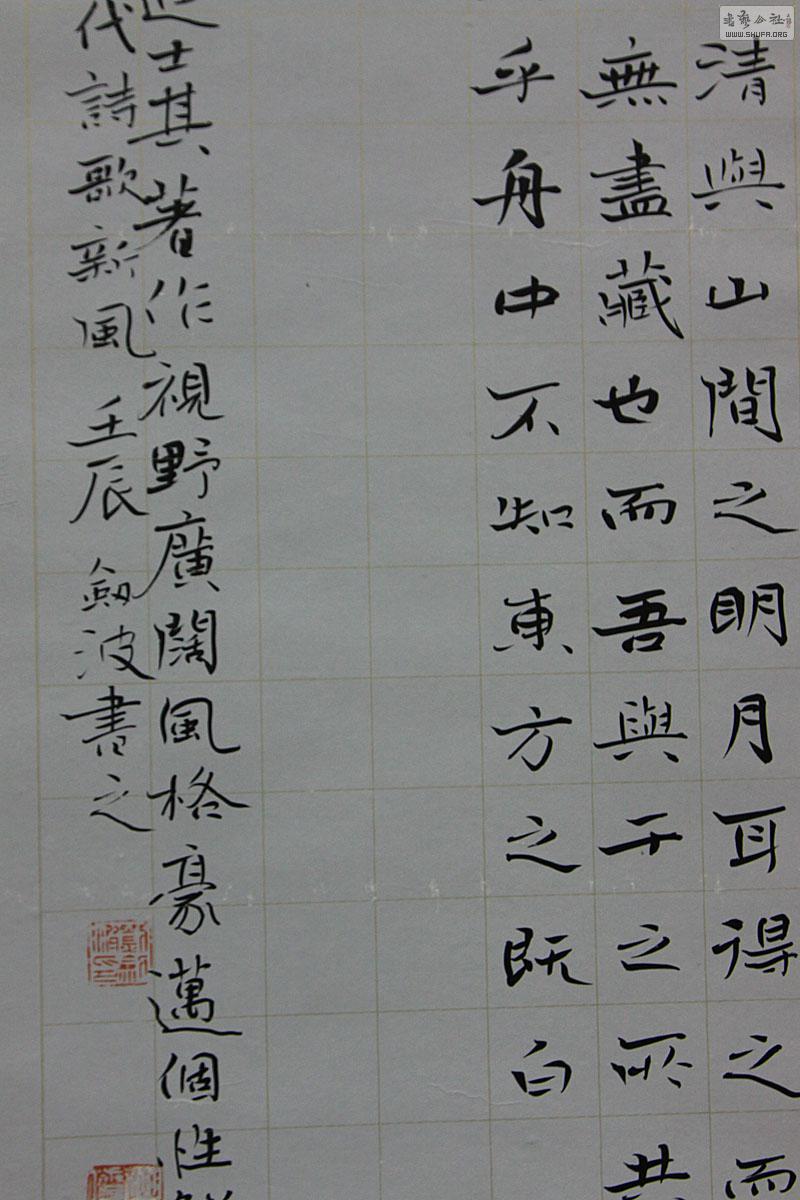 清與山間之明月耳得之而
無盡藏也而吾與子之所共
乎舟中不知東方之既白
進士其著作視野廣闊風格豪邁個性鮮
代詩歌新風 壬辰 劍波書之
WWW.SHUFA.ORG